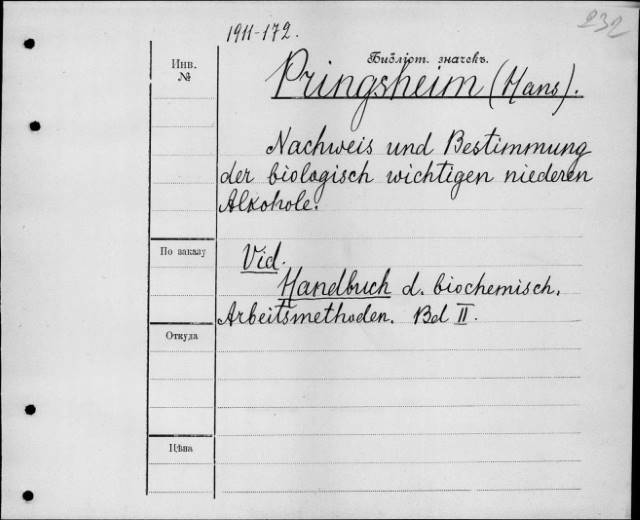 232
1911-172.
Инв.
№
Библіот. значекъ.
Pringsheim (Hans).
Nachweis und Bestimmung
der biologisch wichtigen niederen
Alkohole.
По заказу
Vid.
Handbuch d. biochemisch.
Arbeitsmethoden. Bd II.
Откуда
Цѣна